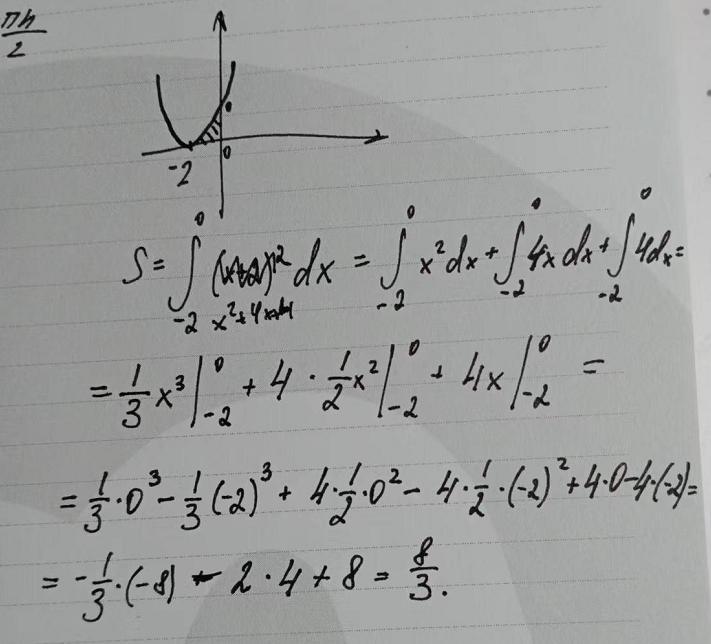 πh/2
0
0
-2
S = ∫₋₂⁰ (x+2)² dx = ∫₋₂⁰ x² dx + ∫₋₂⁰ 4x dx + ∫₋₂⁰ 4 dx =
x² + 4x + 4
= 1/3 x³ |₋₂⁰ + 4 · 1/2 x² |₋₂⁰ + 4x |₋₂⁰ =
= 1/3 · 0³ - 1/3 (-2)³ + 4 · 1/2 · 0² - 4 · 1/2 · (-2)² + 4 · 0 - 4 · (-2) =
= - 1/3 · (-8) - 2 · 4 + 8 = 8/3.